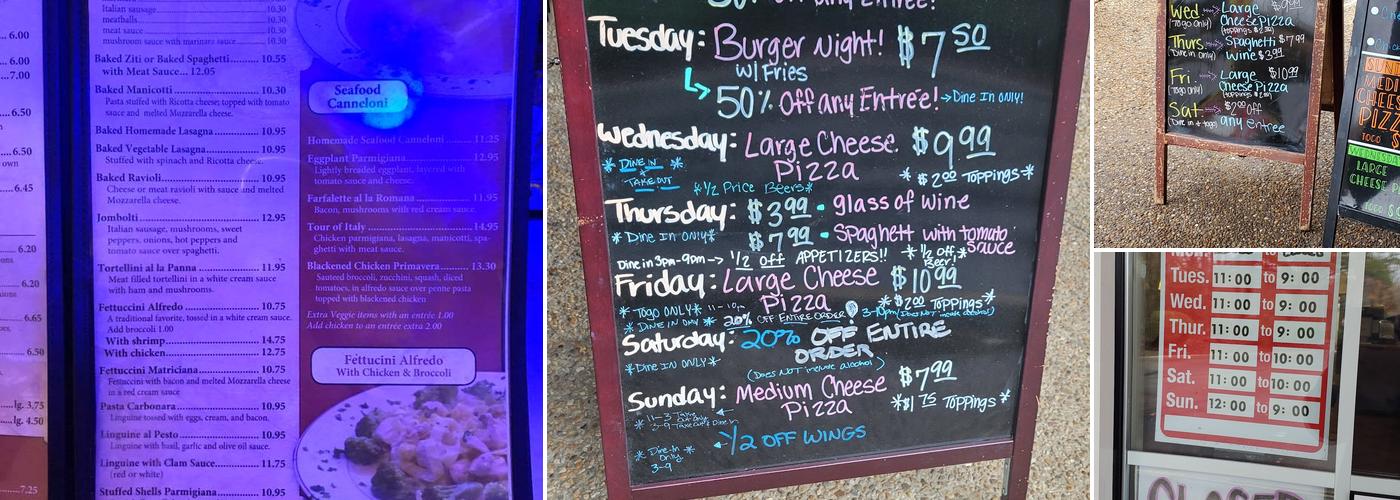 6.00
6.00
7.00
6.50
6.50
own
6.45
6.20
6.20
6.65
6.50
lg. 3.75
lg. 4.50
7.25
10.30
meatballs 10.30
meat sauce 10.30
mushroom sauce with marinara sauce 10.30
Baked Ziti or Baked Spaghetti 10.55
with Meat Sauce... 12.05
Baked Manicotti 10.30
Pasta stuffed with Ricotta cheese; topped with tomato
sauce and melted Mozzarella cheese.
Baked Homemade Lasagna 10.95
Baked Vegetable Lasagna 10.95
Stuffed with spinach and Ricotta cheese.
Baked Ravioli 10.95
Cheese or meat ravioli with sauce and melted
Mozzarella cheese.
Jombolti 12.95
Italian sausage, mushrooms, sweet
peppers, onions, hot peppers and
tomato sauce over spaghetti.
Tortellini al la Panna 11.95
Meat filled tortellini in a white cream sauce
with ham and mushrooms.
Fettuccini Alfredo 10.75
A traditional favorite, tossed in a white cream sauce.
Add broccoli 1.00
With shrimp 14.75
With chicken 12.75
Fettuccini Matriciana 10.75
Fettuccini with bacon and melted Mozzarella cheese
in a red cream sauce
Pasta Carbonara 10.95
Linguine tossed with eggs, cream, and bacon.
Linguine al Pesto 10.95
Linguine with basil, garlic and olive oil sauce.
Linguine with Clam Sauce 11.75
(red or white)
Stuffed Shells Parmigiana 10.95
Seafood
Canneloni
Homemade Seafood Canneloni 11.25
Eggplant Parmigiana 12.95
Lightly breaded eggplant, layered with
tomato sauce and cheese.
Farfalette al la Romana 11.95
Bacon, mushrooms with red cream sauce.
Tour of Italy 14.95
Chicken parmigiana, lasagna, manicotti, spa-
ghetti with meat sauce.
Blackened Chicken Primavera 13.30
Sauteed broccoli, zucchini, squash, diced
tomatoes, in alfredo sauce over penne pasta
topped with blackened chicken
Extra Veggie items with an entrée 1.00
Add chicken to an entrée extra 2.00
Fettucini Alfredo
With Chicken & Broccoli
50% off any Entree!
Tuesday: Burger Night! $7 50
w/ Fries
50% Off any Entrée! → Dine In ONLY!
Wednesday: Large Cheese $9 99
Pizza
* DINE IN *
+
TAKE OUT
* $2 00 Toppings *
* 1/2 Price Beers *
Thursday: $3 99 • glass of wine
* Dine In ONLY * $7 99 • Spaghett with tomato
sauce
Dine in 3pm-9pm → 1/2 Off APPETIZERS!! * 1/2 Off *
Beer
Friday: Large Cheese $10 99
Pizza
* TOGO ONLY * * $2 00 TOPPINGS *
* DINE IN ONLY * 20% OFF ENTIRE ORDER
Saturday: 20% OFF ENTIRE
ORDER
* DINE IN ONLY * (Does NOT include alcohol)
Sunday: Medium Cheese $7 99
Pizza
* $1 75 Toppings *
1/2 OFF WINGS
* Dine-In *
Only
3-9
Wed. Large
(To go Only) Cheese Pizza
Thurs Spaghetti $7.99
(Dine in Only) Wine $3.99
Fri. Large $10 99
(To go only) Cheese Pizza
Sat. $2 00 off
(Dine in + togo) any entree
MEDI
CHEES
PIZZ
WEDNESDA
LARGE
CHEESE
Tues. 11:00 to 9:00
Wed. 11:00 to 9:00
Thur. 11:00 to 9:00
Fri. 11:00 to 10:00
Sat. 11:00 to 10:00
Sun. 12:00 to 9:00